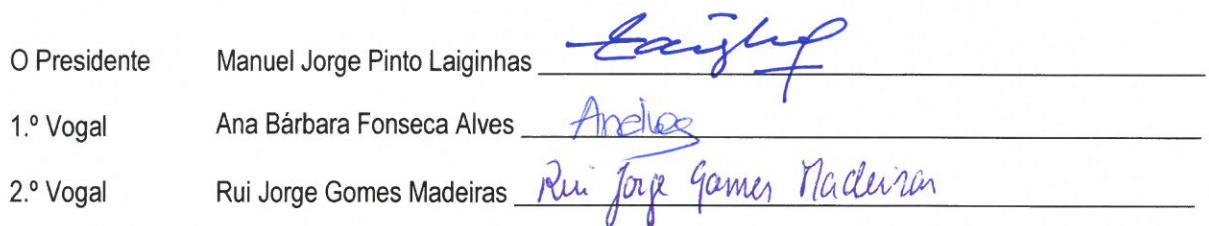 O Presidente Manuel Jorge Pinto Laiginhas
1.º Vogal Ana Bárbara Fonseca Alves
2.º Vogal Rui Jorge Gomes Madeiras Rui Jorge Gomes Madeiras